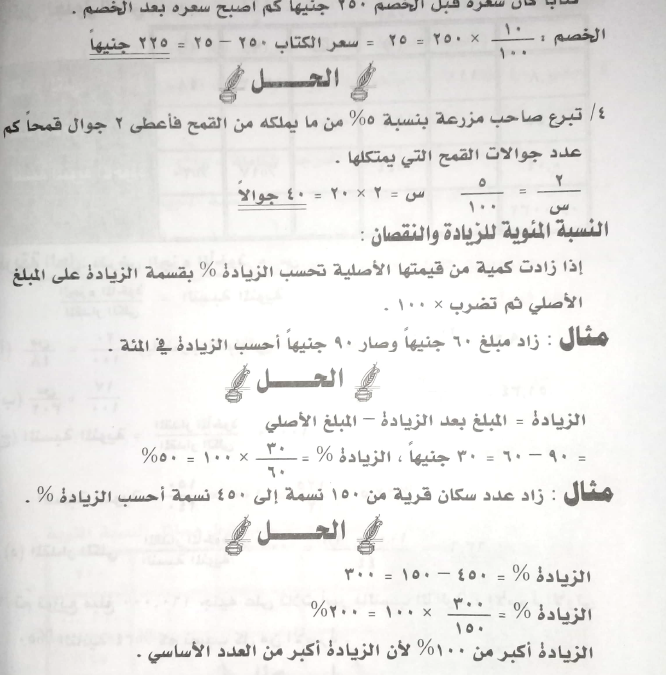 كتاباً كان سعره قبل الخصم ٢٥٠ جنيهاً كم أصبح سعره بعد الخصم .
الخصم : ١٠/١٠٠ × ٢٥٠ = ٢٥ = سعر الكتاب ٢٥٠ – ٢٥ = ٢٢٥ جنيهاً
الحــــل
٤/ تبرع صاحب مزرعة بنسبة ٥% من ما يملكه من القمح فأعطى ٢ جوال قمحاً كم
عدد جوالات القمح التي يمتكلها .
٢/س = ٥/١٠٠ س = ٢ × ٢٠ = ٤٠ جوالاً
النسبة المئوية للزيادة والنقصان :
إذا زادت كمية من قيمتها الأصلية تحسب الزيادة % بقسمة الزيادة على المبلغ
الأصلي ثم تضرب × ١٠٠ .
مثال : زاد مبلغ ٦٠ جنيهاً وصار ٩٠ جنيهاً أحسب الزيادة في المئة .
الحــــل
الزيادة = المبلغ بعد الزيادة – المبلغ الأصلي
= ٩٠ – ٦٠ = ٣٠ جنيهاً ، الزيادة % = ٣٠/٦٠ × ١٠٠ = ٥٠%
مثال : زاد عدد سكان قرية من ١٥٠ نسمة إلى ٤٥٠ نسمة أحسب الزيادة % .
الحــــل
الزيادة % = ٤٥٠ – ١٥٠ = ٣٠٠
الزيادة % = ٣٠٠/١٥٠ × ١٠٠ = ٢٠٠%
الزيادة أكبر من ١٠٠% لأن الزيادة أكبر من العدد الأساسي .